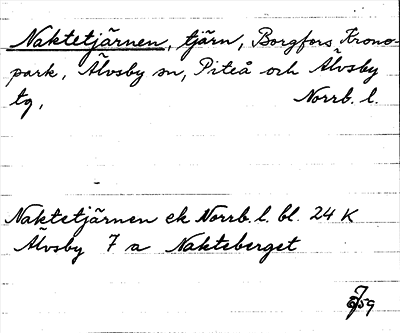 Naktetjärnen, tjärn, Borgfors Krono-
park, Älvsby sn, Piteå och Älvsby
tg, Norrb. l.
Naktetjärnen ek Norrb. l. bl. 24 K
Älvsby 7 a Nakteberget
59